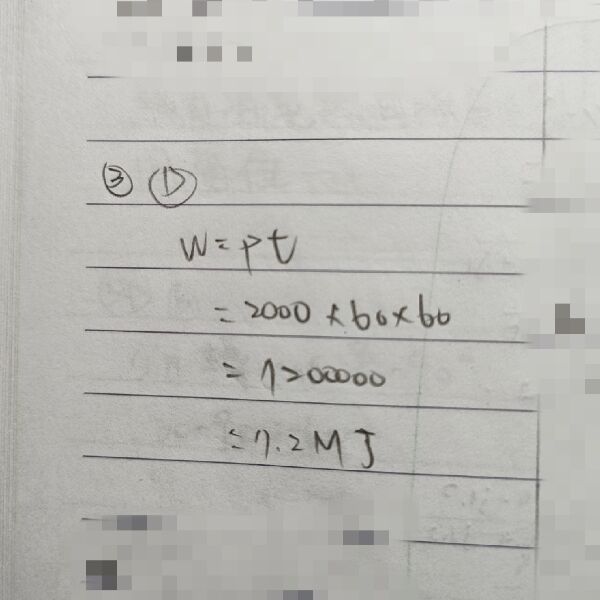 ③ ①
W=pt
=2000×60×60
=7200000
=7.2MJ